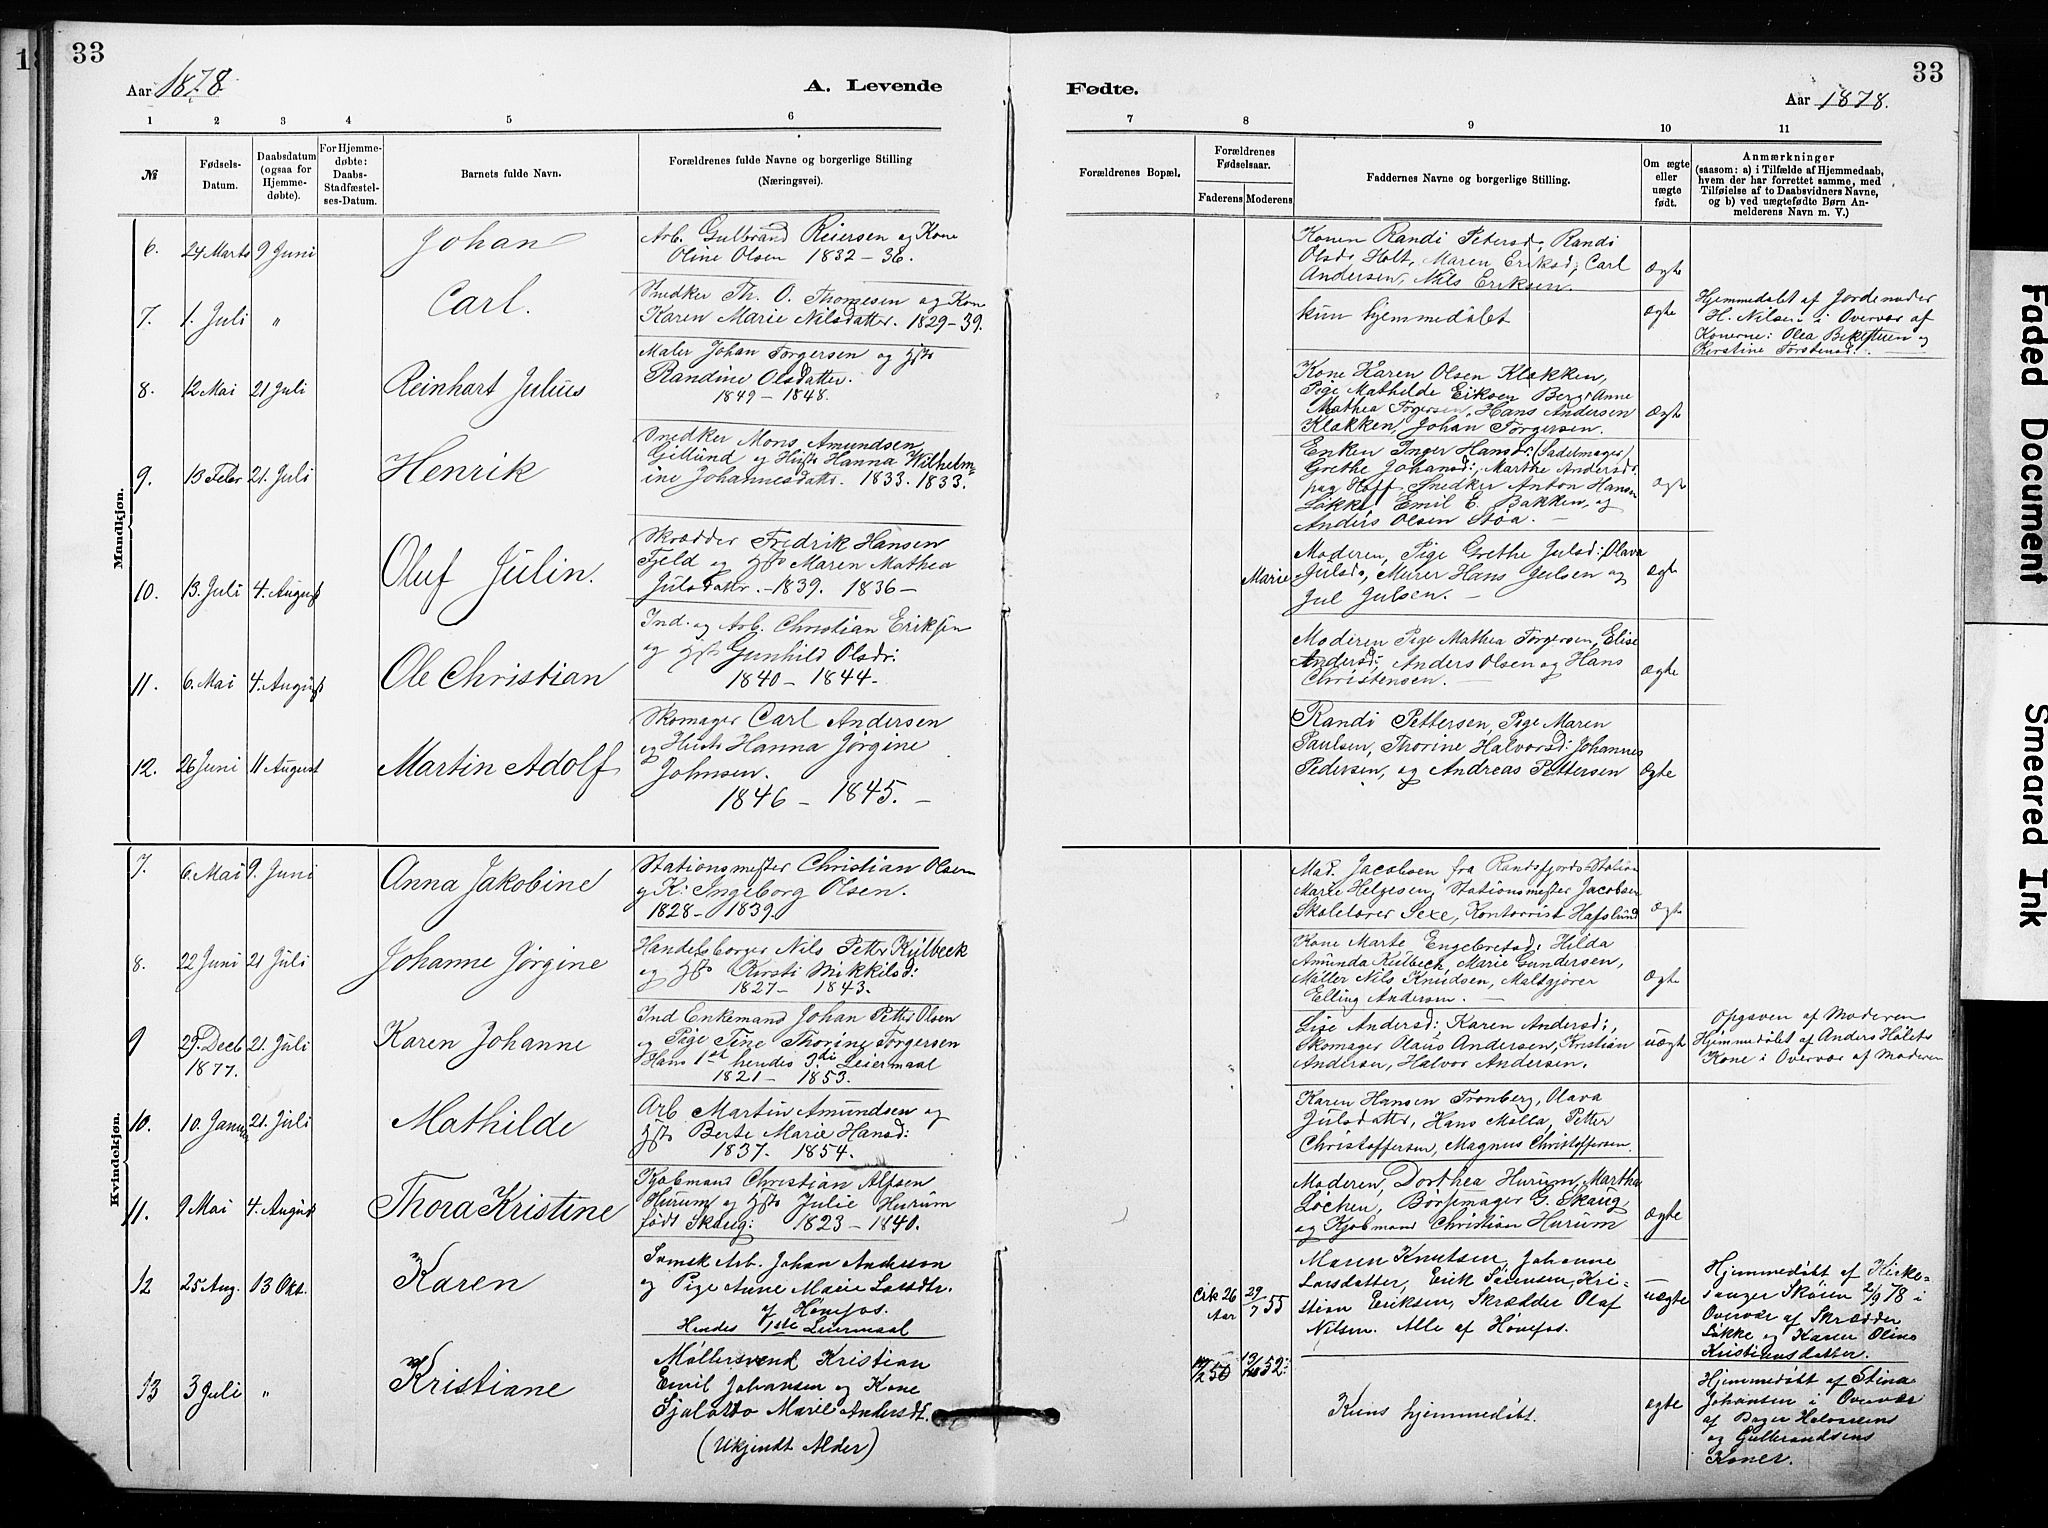 33
Aar 1878.
A. Levende
1 2 3 4 5 6
№
Fødsels-
Datum.
Daabsdatum
(ogsaa for
Hjemme-
døbte).
For Hjemme-
døbte:
Daabs-
Stadfæstel-
ses-Datum.
Barnets fulde Navn.
Forældrenes fulde Navne og borgerlige Stilling
(Næringsvei).
Mandkjøn.
6. 24 Marts 9 Juni Johan
Arb. Gulbrand Reiersen og Kone
Oline Olsen 1832 - 36.
7. 1. Juli " Carl.
Snedker Th. O. Thomesen og Kone
Karen Marie Nilsdatter. 1829-39.
8. 12 Mai 21 Juli Reinhart Julius
Maler Johan Torgersen og Hst
Randine Olsdatter.
1849 - 1848.
9. 13 Febr 21. Juli Henrik
Snedker Mons Amundsen
Gillund og Hust Hanna Wilhelm-
ine Johannesdattr. 1833. 1833.
10. 13. Juli 4. August Oluf Julin.
Skrædder Fredrik Hansen
Fjeld og Hst Maren Mathea
Julsdattr. - 1839. 1836 -
11. 6. Mai 4. August Ole Christian
Ind. og Arb. Christian Eriksen
og Hst Gunhild Olsdr:
1840 - 1844.
12. 26 Juni 11 August Martin Adolf
Skomager Carl Andersen
og Hust Hanna Jørgine
Johnsen.
1846 - 1845. -
Kvindekjøn.
7. 6. Mai 9. Juni Anna Jakobine
Stationsmester Christian Olsen
og K: Ingeborg Olsen.
1828 - 1839.
8. 22 Juni 21 Juli Johanne Jørgine
Handelsborger Nils Petter Kjilbeck
og Hst Kirsti Mikkilsd:
1827 - 1843.
9 29. Decb 21. Juli Karen Johanne
1877.
Ind Enkemand Johan Petter Olsen
og Pige Tine Thorine Torgersen
Hans 1st hendes 3di Leiermaal
1821 - 1853.
10. 10. Januar 21. Juli Mathilde
Arb Martin Amundsen og
Hst Berte Marie Hansd:
1837. 1854.
11. 9 Mai 4. August Thora Kristine
Kjøbmand Christian Alfsen
Hurum og Hst Julie Hurum
født Skaug: 1823 - 1840.
12 25 Aug. 13 Okt. Karen
Svensk Arb. Johan Anderson
og Pige Anne Marie Larsdtr.
af Hønefos.
Hendes 1ste Leiermaal
13 3 Juli " Kristiane
Møllersvend Kristian
Emil Johansen og Kone
Sjalotto Marie Andersdt.
(Ukjendt Alder)
Fødte.
Aar 1878.
33
7 8 9 10 11
Forældrenes Bopæl.
Forældrenes
Fødselsaar.
Faderens Moderens
Faddernes Navne og borgerlige Stilling.
Om ægte
eller
uægte
født.
Anmærkninger
(saasom: a) i Tilfælde af Hjemmedaab,
hvem der har forrettet samme, med
Tilføielse af to Daabsvidners Navne,
og b) ved uægtefødte Børn An-
melderens Navn m. V.)
Konen Randi Petersd, Randi
Olsd. Holt, Maren Eriksd, Carl
Andersen, Nils Eriksen.
Ægte
kun hjemmedøbt
ægte
Hjemmedøbt af Jordemoder
H. Nilsen i Overvær af
Konerne: Olea
Kirstine Torstensd:
Kone Karen Olsen Klækken,
Pige Mathilde Eiksen Berg, Anne
Mathea Torgersen, Hans Andersen
Klækken, Johan Torgersen.
Ægte
Enken Inger Hansd: (Sadelmager)
Grethe Johansd:, Marthe Andersd:
paa Hoff Snedker Anton Hansen
Løkke, Emil E. Bakken, og
Anders Olsen Støa. -
Ægte
Marie
Moderen, Pige Grethe Julsd: Olava
Julsd, Murer Hans Julsen og
Jul Julsen. -
Ægte
Moderen Pige Mathea Torgersen, Elise
Andersd:, Anders Olsen og Hans
Christensen. -
Ægte
Randi Pettersen, Pige Maren
Paulsen, Thorine Halvorsd: Johannes
Pedersen, og Andreas Pettersen
Ægte
Mad. Jacobsen fra Randsfjords Station
Marie Helgesen, Stationsmester Jacobsen
Skolelærer Sexe, Kontorrist Hafslund
Ægte
Kone Marte Engebretsd: Hilda
Amunda Kulbech, Marie Gundersen,
Møller Nils Knudsen, Maltgjører
Elling Andersen. -
Ægte
Lise Andersd: Karen Andersd:,
Skomager Olaus Andersen, Kristian
Andersen, Halvor Andersen.
uægte
Opgaven af Moderen
Hjemmedøbt af Anders Holets
Kone i Overvær af Moderen
Karen Hansen Tronberg, Olava
Julsdatter, Hans Mølla, Petter
Christoffersen, Magnus Christoffersen.
Moderen, Dorthea Hurum, Marthe
Løchen, Børsemager G. Skaug
og Kjøbmand Christian Hurum
Ægte
Crk 26 Aar 29/7 55
Maren Knutsen, Johanne
Larsdatter, Erik Sørensen, Kri-
stian Eriksen, Skrædder Olaf
Nilsen. Alle af Hønefos.
uægte
Hjemmedøbt af Kirke-
sanger Skøien 2/9 78 i
Overvær af Skrædder
Løkke og Karen Oline
Kristiansdatter.
50 52
Kuns hjemmedøbt.
ægte
Hjemmedøbt af Stina
Johansen i Overvær
af Bager Halvorsens
og Gulbrandsens
Koner.
Faded Document
Smeared Ink